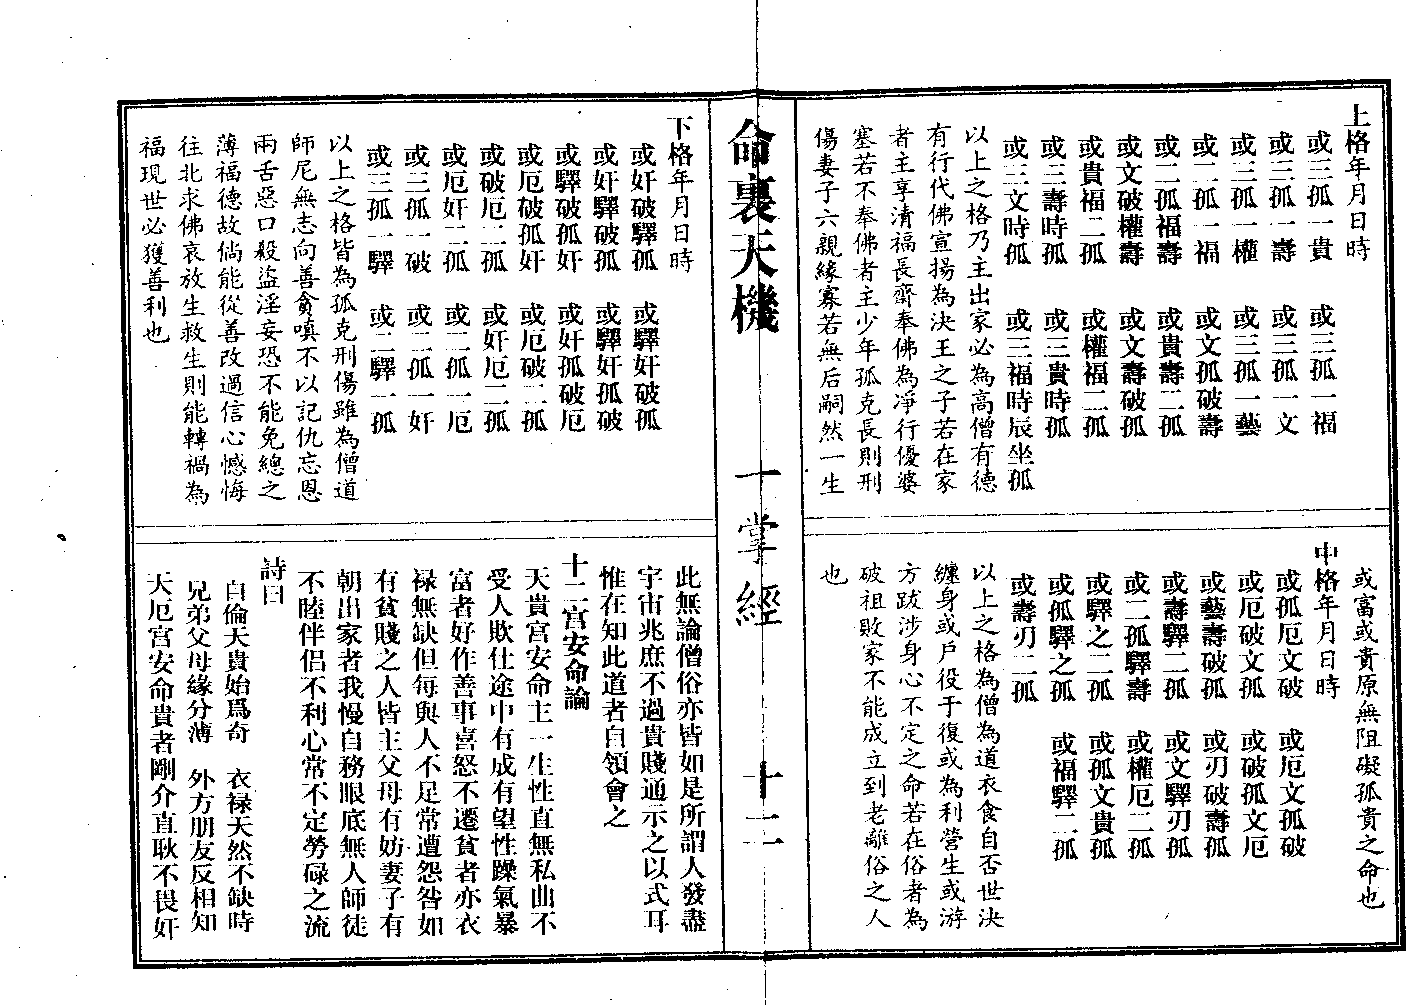 上格年月日時
或三孤一貴　或三孤一福
或三孤一壽　或三孤一文
或三孤一權　或三孤一藝
或二孤一福　或文孤破壽
或二孤福壽　或貴壽二孤
或文破權壽　或文壽破孤
或貴福二孤　或權福二孤
或三壽時孤　或三貴時孤
或三文時孤　或三福時辰坐孤
以上之格乃主出家必為高僧有德
有行代佛宣揚為決王之子若在家
者主享清福長齋奉佛為凈行優婆
塞若不奉佛者主少年孤克長則刑
傷妻子六親緣寡若無后嗣然一生
或富或貴原無阻礙孤貴之命也
中格年月日時
或孤厄文破　或厄文孤破
或厄破文孤　或破孤文厄
或藝壽破孤　或刃破壽孤
或壽驛二孤　或文驛刃孤
或二孤驛壽　或權厄二孤
或驛之二孤　或孤文貴孤
或孤驛之孤　或福驛二孤
或壽刃二孤
以上之格為僧為道衣食自否世決
纏身或戶役于復或為利營生或游
方跋涉身心不定之命若在俗者為
破祖敗家不能成立到老離俗之人
也
命裏天機　一掌經　十二
下格年月日時
或奸破驛孤　或驛奸破孤
或奸驛破孤　或驛奸孤破
或驛破孤奸　或奸孤破厄
或厄破孤奸　或厄破二孤
或破厄二孤　或奸厄二孤
或厄奸二孤　或二孤一厄
或三孤一破　或二孤一奸
或三孤一驛　或二驛一孤
以上之格皆為孤克刑傷雖為僧道
師尼無志向善貪嗔不以記仇忘恩
兩舌惡口殺盜淫妄恐不能免總之
薄福德故倘能從善改過信心憾悔
往北求佛哀放生救生則能轉禍為
福現世必獲善利也
此無論僧俗亦皆如是所謂人發盡
宇宙兆庶不過貴賤通示之以式耳
惟在知此道者自領會之
十二宮安命論
天貴宮安命主一生性直無私曲不
受人欺仕途中有成有望性躁氣暴
富者好作善事喜怒不遷貧者亦衣
禄無缺但每與人不足常遭怨咎如
有貧賤之人皆主父母有妨妻子有
朝出家者我慢自務眼底無人師徒
不睦伴侶不利心常不定勞碌之流
詩曰
自倫天貴始爲奇　衣禄天然不缺時
兄弟父母緣分薄　外方朋友反相知
天厄宮安命貴者剛介直耿不畏奸